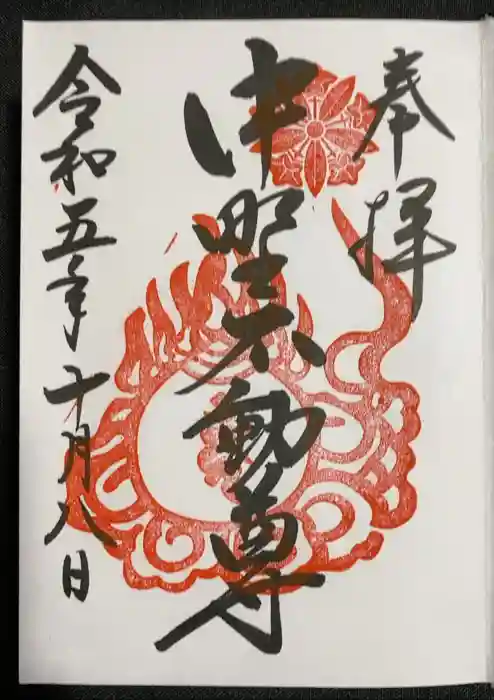 奉拝
不動尊
令和五年十月八日